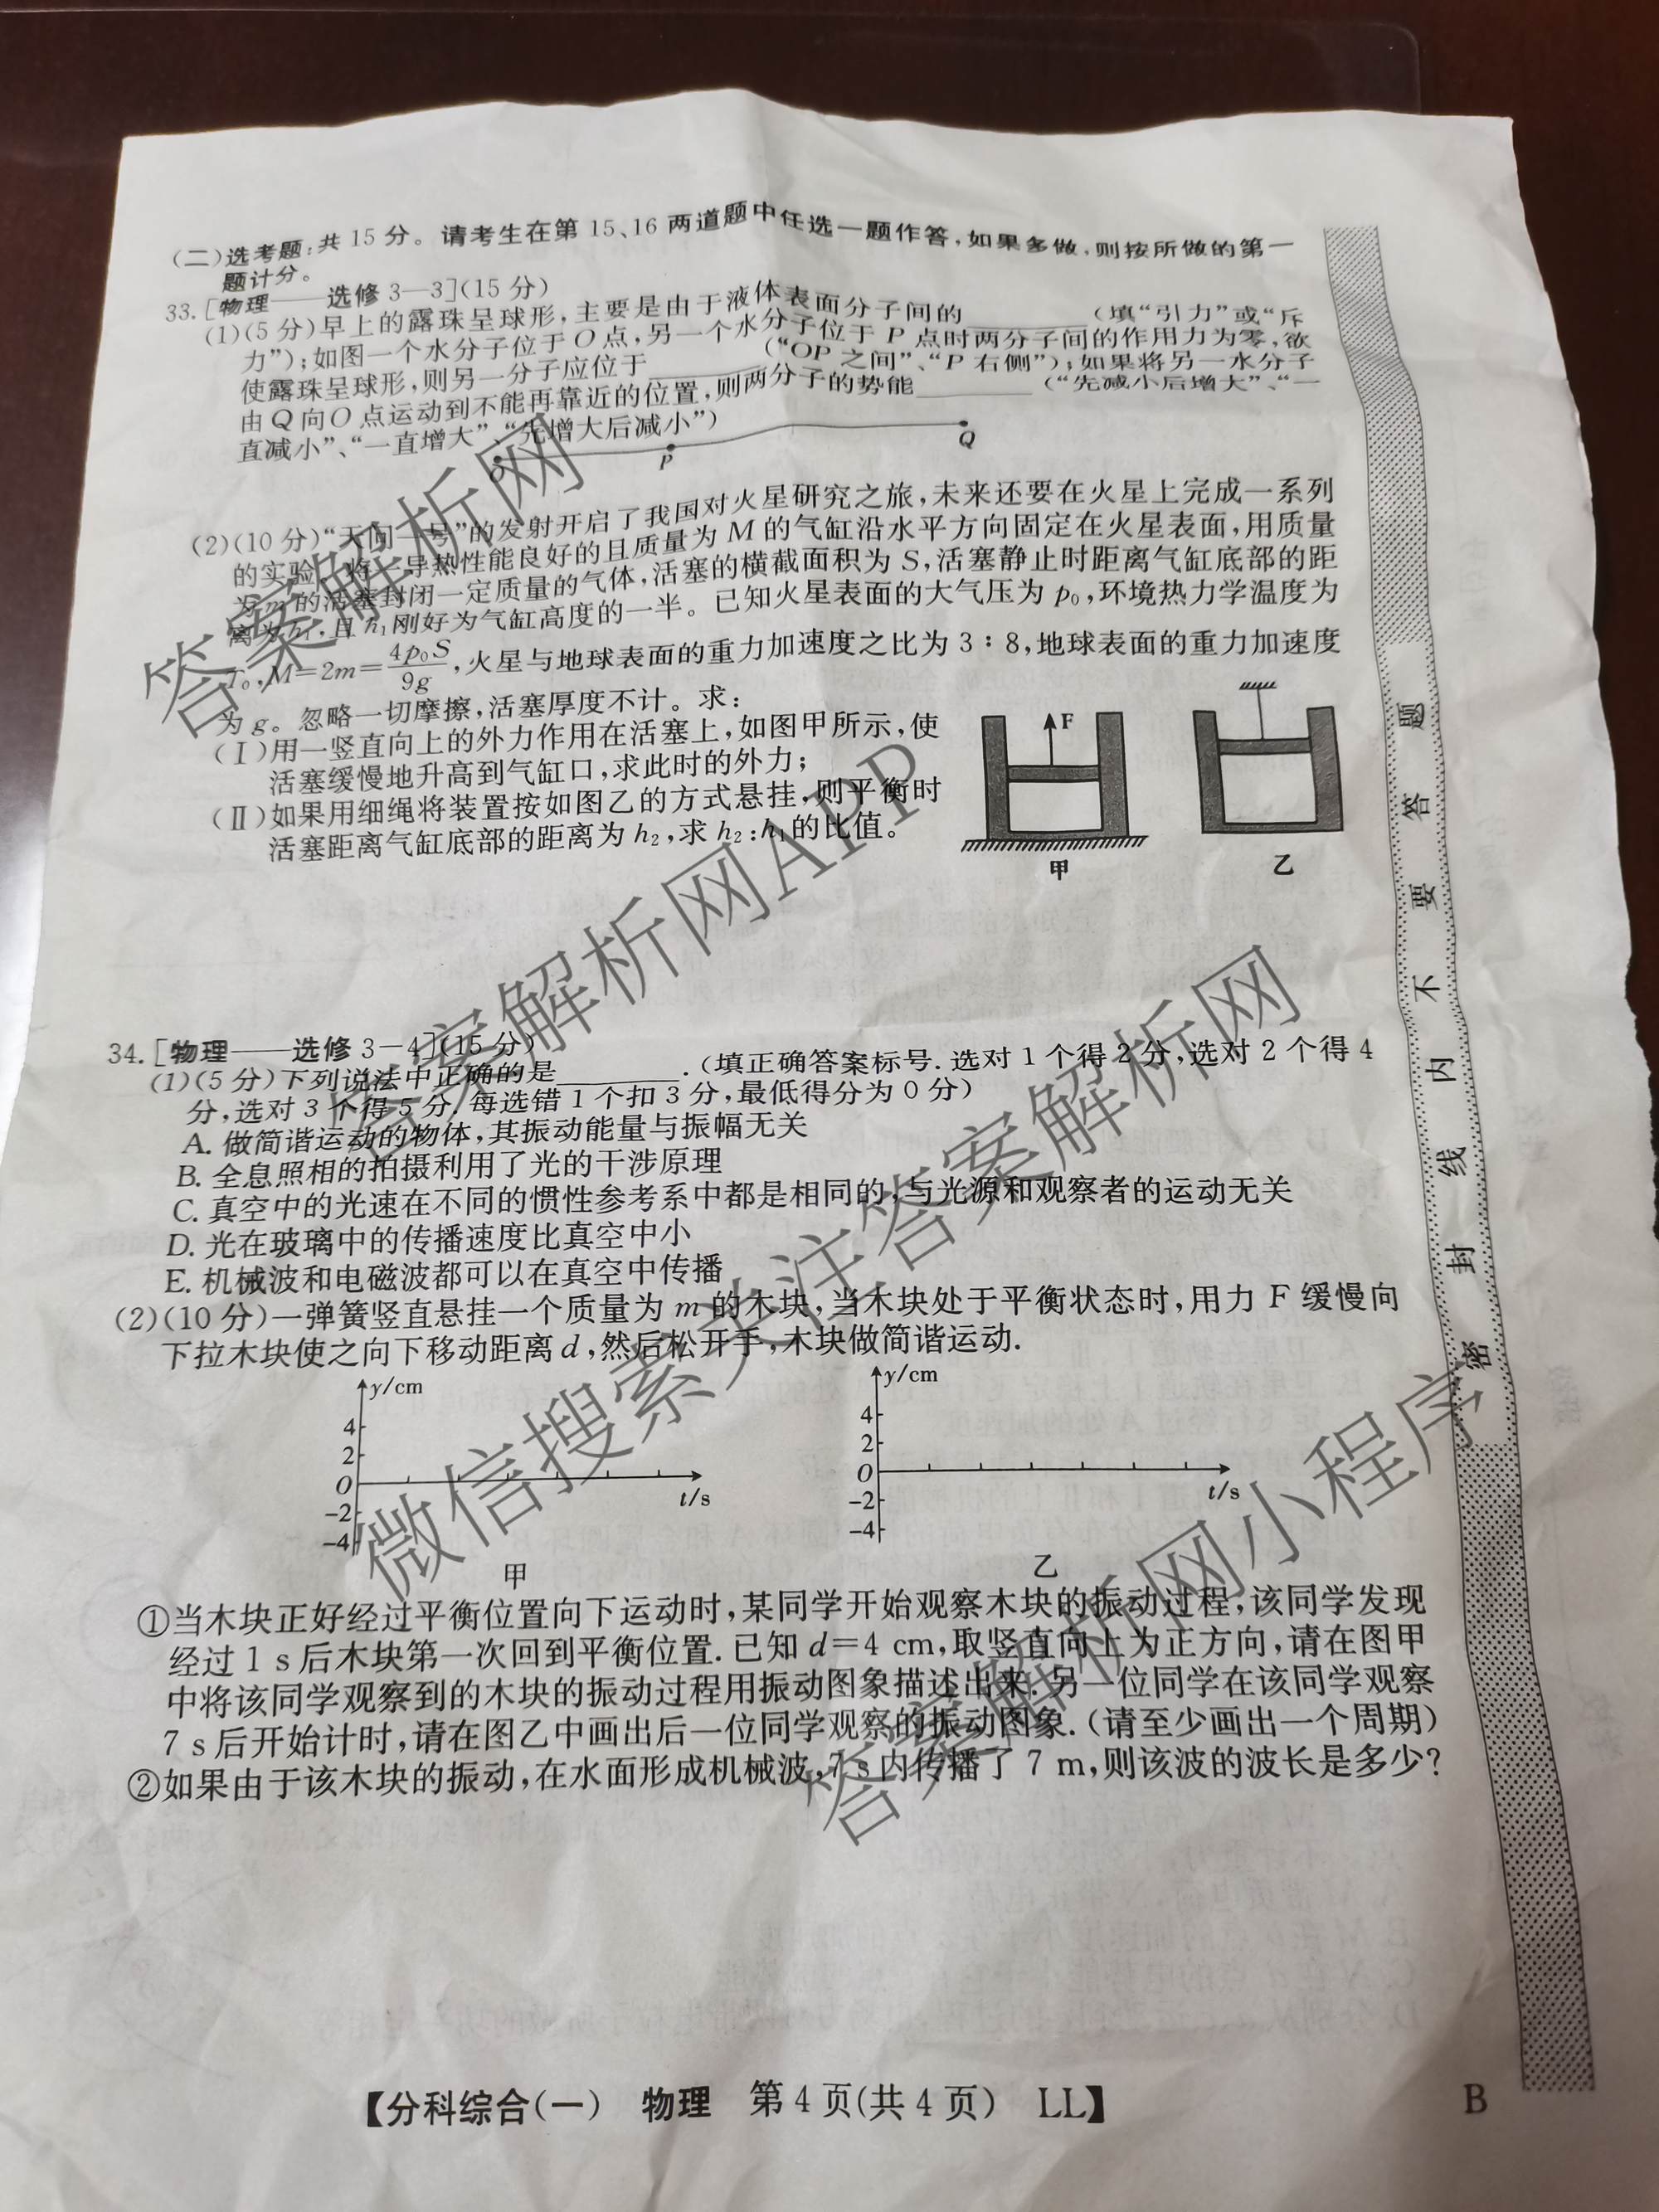 (二)选考题:共15分。请考生在第15、16两道题中任选一题作答,如果多做,则按所做的第一
题计分。
33.[物理——选修3—3](15分)
(1)(5分)早上的露珠呈球形,主要是由于液体表面分子间的________(填“引力”或“斥
力”);如图一个水分子位于O点,另一个水分子位于P点时两分子间的作用力为零,欲
使露珠呈球形,则另一分子应位于________(“OP之间”、“P右侧”);如果将另一水分子
由Q向O点运动到不能再靠近的位置,则两分子的势能________(“先减小后增大”、“一
直减小”、“一直增大”、“先增大后减小”)
O P Q
(2)(10分)“天问一号”的发射开启了我国对火星研究之旅,未来还要在火星上完成一系列
的实验。将一导热性能良好的且质量为M的气缸沿水平方向固定在火星表面,用质量
为m的活塞封闭一定质量的气体,活塞的横截面积为S,活塞静止时距离气缸底部的距
离为h₁,且h₁刚好为气缸高度的一半。已知火星表面的大气压为p₀,环境热力学温度为
T₀,M=2m=4p₀S/9g,火星与地球表面的重力加速度之比为3:8,地球表面的重力加速度
为g。忽略一切摩擦,活塞厚度不计。求:
(Ⅰ)用一竖直向上的外力作用在活塞上,如图甲所示,使
活塞缓慢地升高到气缸口,求此时的外力;
(Ⅱ)如果用细绳将装置按如图乙的方式悬挂,则平衡时
活塞距离气缸底部的距离为h₂,求h₂:h₁的比值。
F
甲
乙
34.[物理——选修3-4](15分)
(1)(5分)下列说法中正确的是________.(填正确答案标号.选对1个得2分,选对2个得4
分,选对3个得5分.每选错1个扣3分,最低得分为0分)
A.做简谐运动的物体,其振动能量与振幅无关
B.全息照相的拍摄利用了光的干涉原理
C.真空中的光速在不同的惯性参考系中都是相同的,与光源和观察者的运动无关
D.光在玻璃中的传播速度比真空中小
E.机械波和电磁波都可以在真空中传播
(2)(10分)一弹簧竖直悬挂一个质量为m的木块,当木块处于平衡状态时,用力F缓慢向
下拉木块使之向下移动距离d,然后松开手,木块做简谐运动.
y/cm
4
2
O
-2
-4
t/s
甲
y/cm
4
2
O
-2
-4
t/s
乙
①当木块正好经过平衡位置向下运动时,某同学开始观察木块的振动过程,该同学发现
经过1 s后木块第一次回到平衡位置.已知d=4 cm,取竖直向上为正方向,请在图甲
中将该同学观察到的木块的振动过程用振动图象描述出来.另一位同学在该同学观察
7 s后开始计时,请在图乙中画出后一位同学观察的振动图象.(请至少画出一个周期)
②如果由于该木块的振动,在水面形成机械波,7 s内传播了7 m,则该波的波长是多少?
【分科综合(一) 物理 第4页(共4页) LL】
B
密封线内不要答题
答案解析网
答案解析网APP
微信搜索关注答案解析网
答案解析网小程序